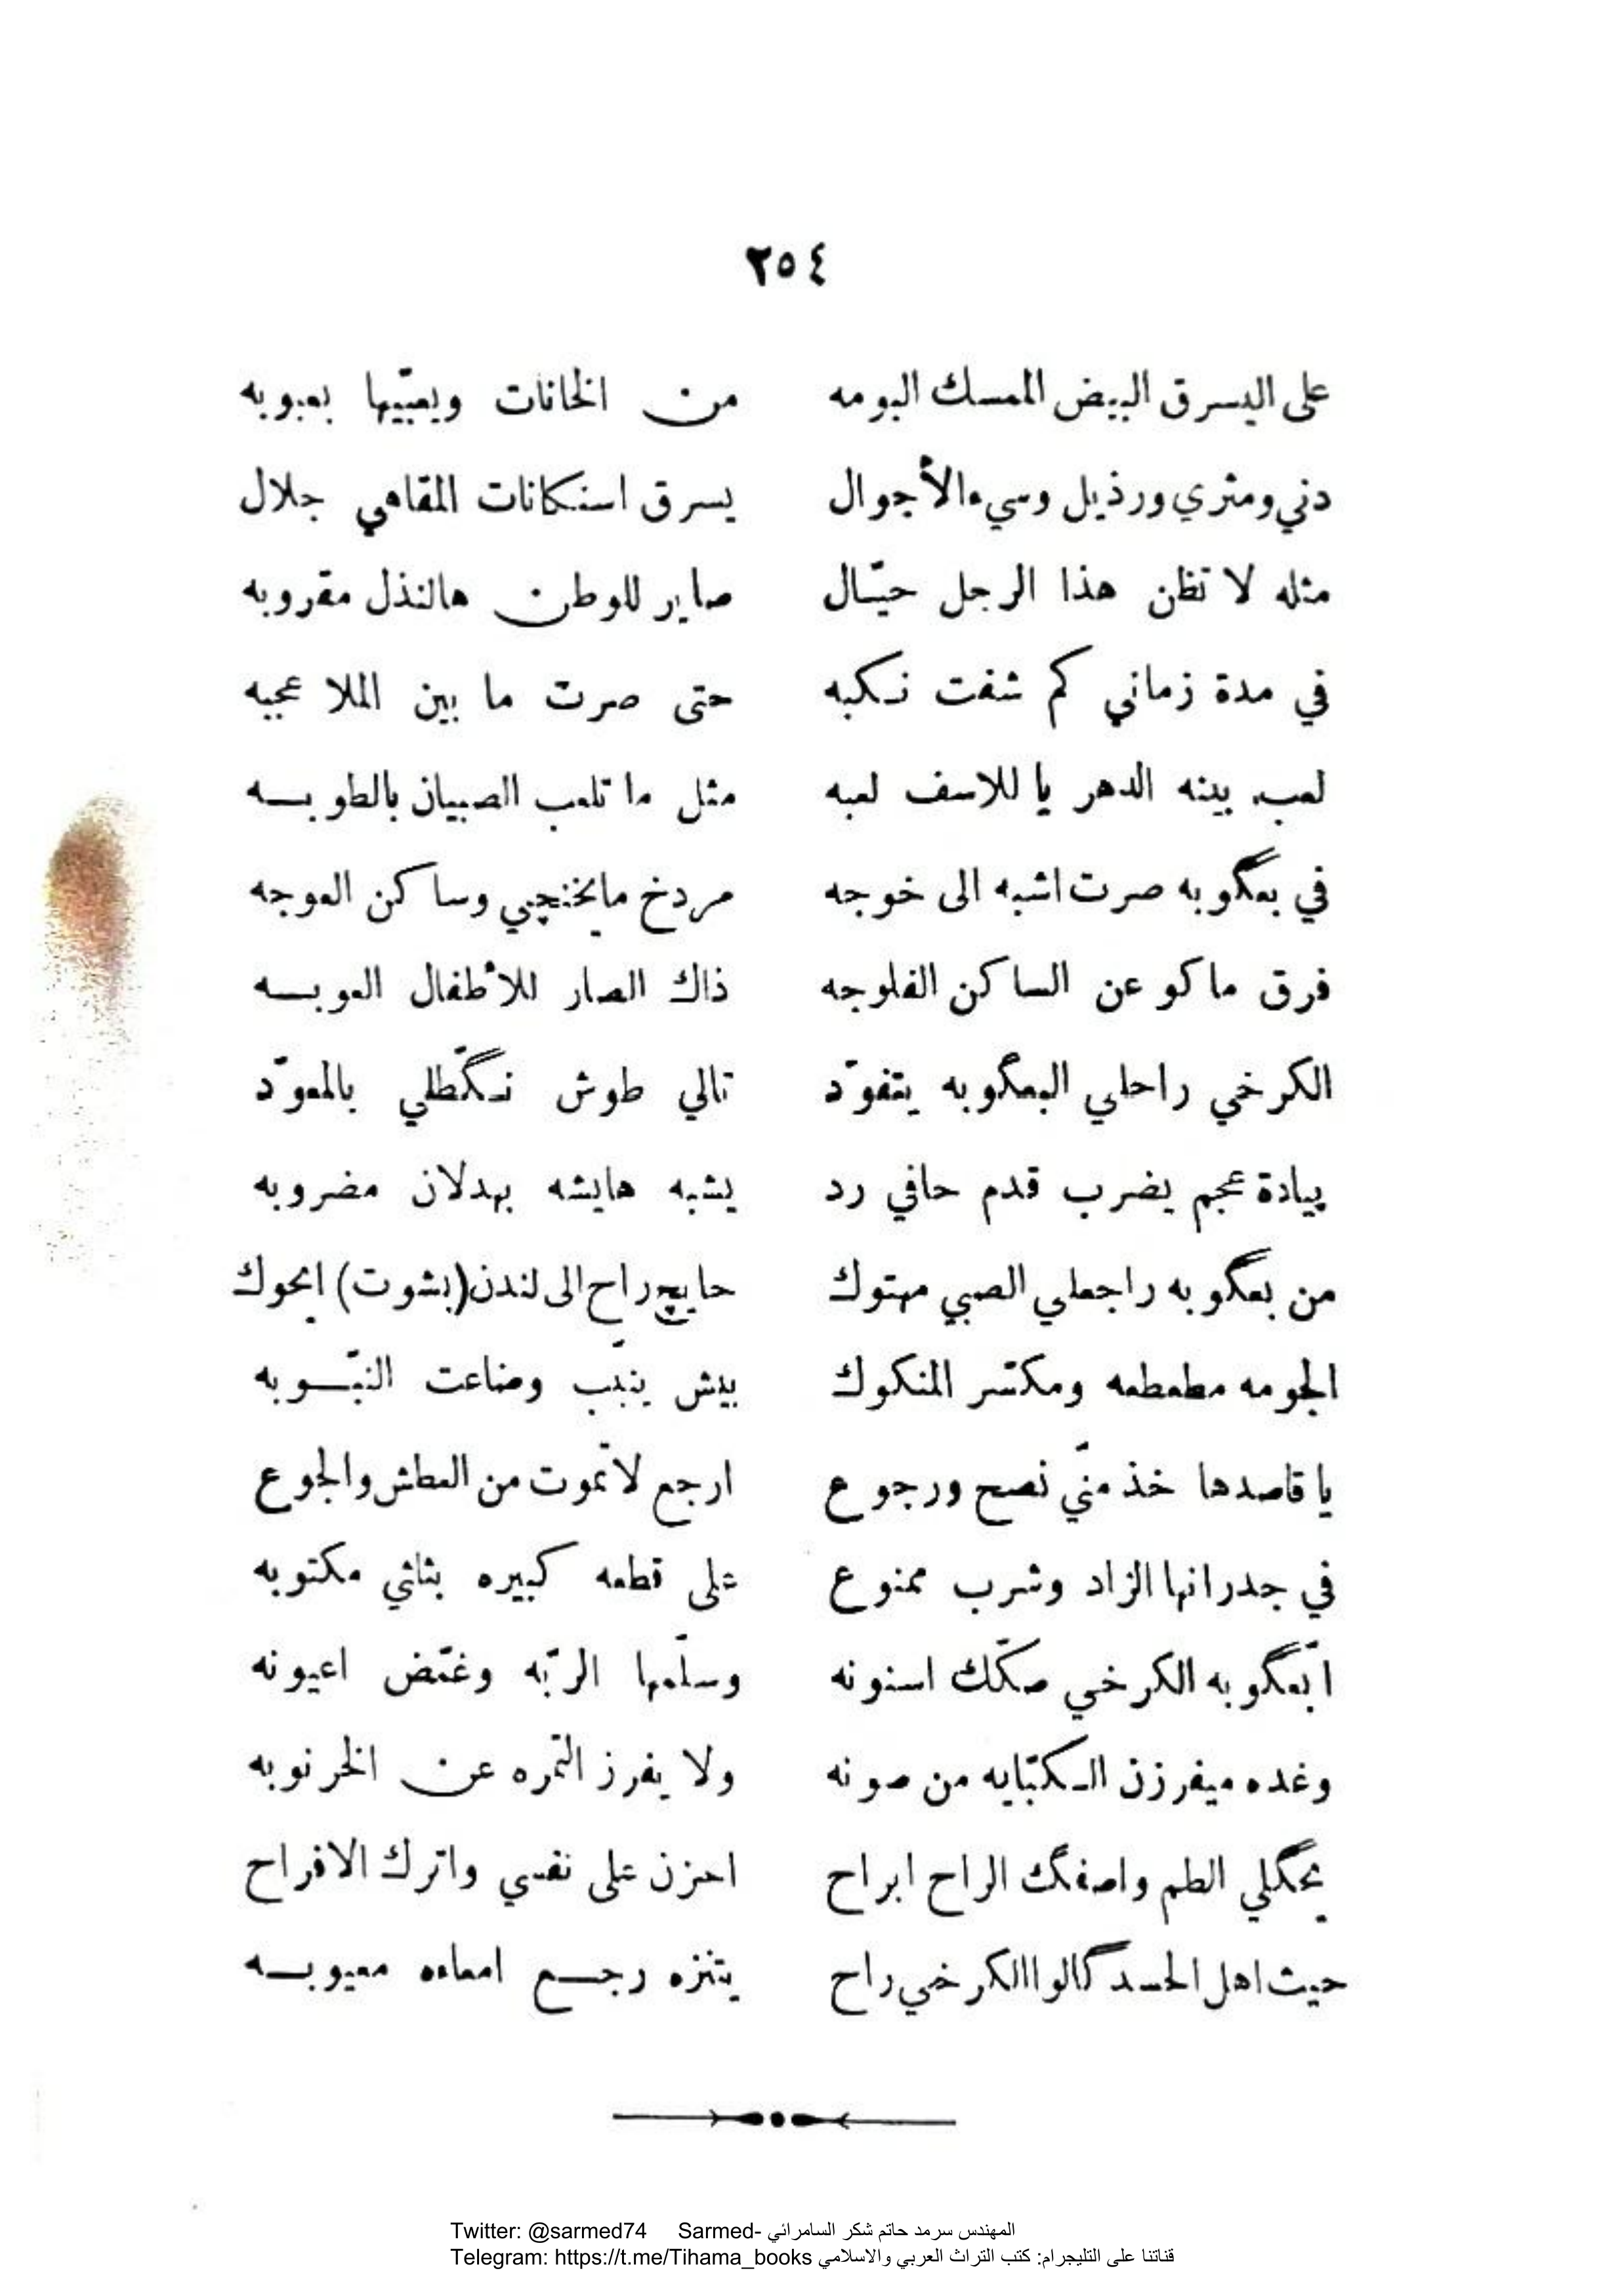 ٢٥٤
على اليسرق البيض المسك البومه من الخانات ويعبّيها بعبوبه
دني ومثري ورذيل وسيء الأجوال يسرق استكانات المقاهي جلال
مثله لا تظن هذا الرجل حيّال صاير للوطن هالنذل مقروبه
في مدة زماني كم شفت نكبه حتى صرت ما بين الملا عجبه
لعب بينه الدهر يا للاسف لعبه مثل ما تلعب الصبيان بالطوبه
في بعگوبه صرت اشبه الى خوجه مردخ مايخنچي وساكن العوجه
فرق ماكو عن الساكن الفلوجه ذاك الصار للأطفال العوبه
الكرخي راحلي البعگوبه يتفوّد تالي طوش نگّطلي بالمعوّد
پيادة عجم يضرب قدم حافي رد يشبه هايشه بهدلان مضروبه
من بعگوبه راجعلي الصبي مهتوك حايچ راح الى لندن (بشوت) ايحوك
الجومه مطعطعه ومكسّر المنكوك بيش ينبّب وضاعت النبّوبه
يا قاصدها خذ منّي نصح ورجوع ارجع لا تموت من العطش والجوع
في جدرانها الزاد وشرب ممنوع على قطعه كبيره بثاثي مكتوبه
ابّعگوبه الكرخي صكّك اسنونه وسلّمها الربّه وغمّض اعيونه
وغده ميفرزن الكبّايه من صونه ولا يفرز التمره عن الخرنوبه
يحگلي الطم واصفگ الراح ابراح احزن على نفسي واترك الافراح
حيث اهل الحسد گالوا الكرخي راح يتنزه رجع امعاءه معيوبه
Twitter: @sarmed74 Sarmed- المهندس سرمد حاتم شكر السامرائي
Telegram: https://t.me/Tihama_books قناتنا على التليجرام: كتب التراث العربي والاسلامي